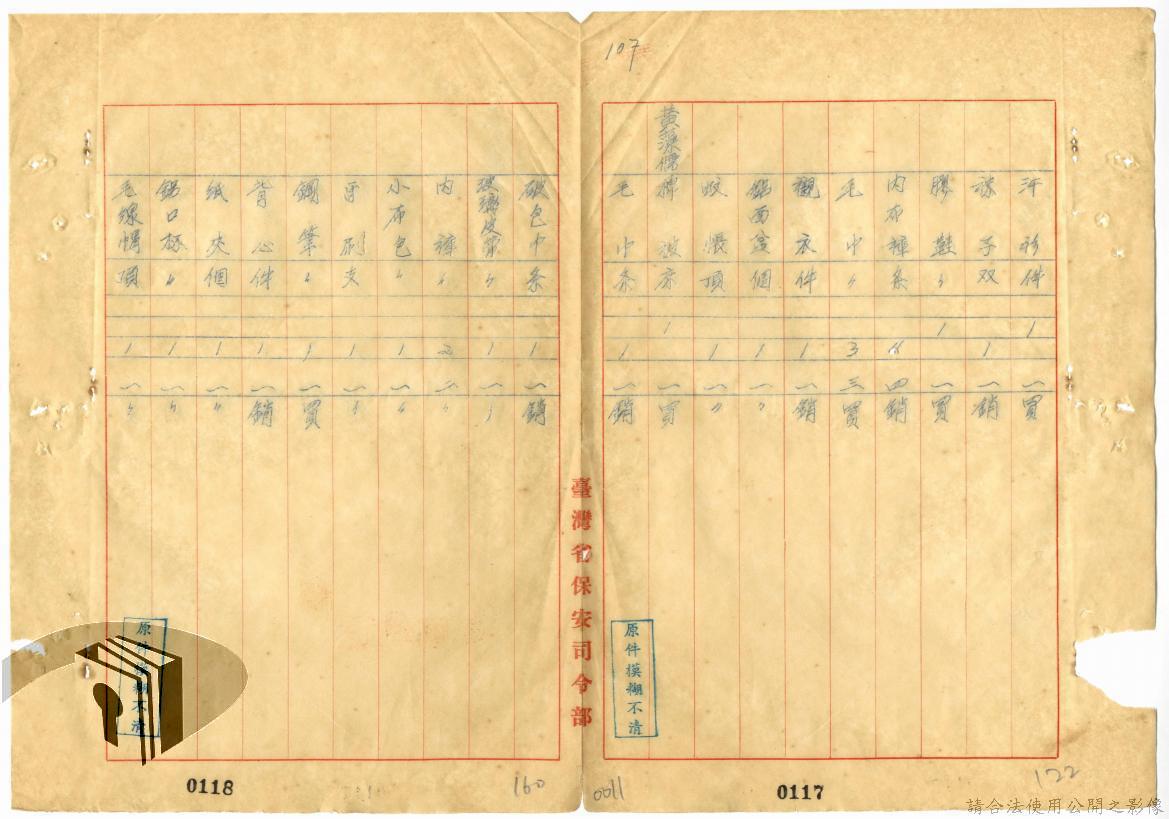 107
汗衫件 1 一買
襪子双 1 一銷
膠鞋〃 1 一買
內布褲条 4 四銷
毛巾〃 3 三買
襯衣件 1 一銷
鋁面盆個 1 一〃
蚊帳頂 1 一〃
棉被床 1 一買
毛巾条 1 一銷
0117
122
0011
臺灣省保安司令部
原件模糊不清
包巾条 1 一銷
玻璃皮帶〃 1 一〃
內褲〃 2 二〃
小布包〃 1 一〃
牙刷支 1 一〃
鋼筆〃 1 一買
背心件 1 一銷
紙夾個 1 一〃
鋁口杯〃 1 一〃
毛線帽頂 1 一〃
原件模糊不清
0118
160
請合法使用公開之影像